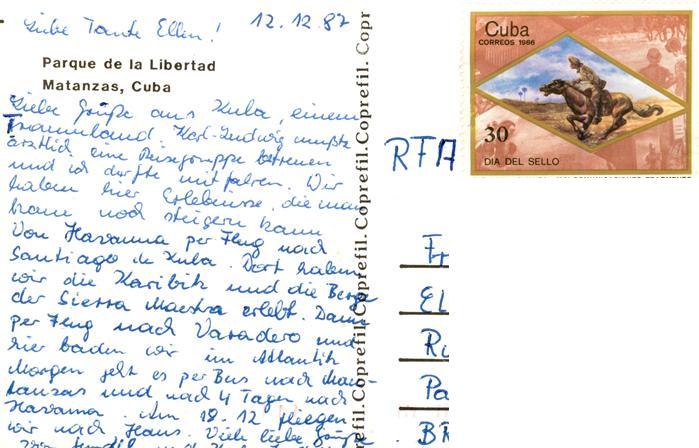 Liebe Tante Ellen! 12.12.87
Parque de la Libertad
Matanzas, Cuba
Liebe Grüße aus Kuba, einem
Traumland. Karl-Ludwig mußte
ärztlich eine Reisegruppe betreuen
und ich durfte mitfahren. Wir
haben hier Erlebnisse, die man
kaum noch steigern kann
Von Havanna per Flug nach
Santiago de Kuba. Dort haben
wir die Karibik und die Berge
der Sierra Maestra erlebt. Dann
per Flug nach Varadero und
hier baden wir im Atlantik
Morgen geht es per Bus nach Man-
tanzas und nach 4 Tagen nach
Havanna. Am 18.12 fliegen
wir nach Haus. Viele liebe Grüße
Coprefil.Coprefil.Coprefil.Coprefil.Copr
Cuba
CORREOS 1986
30
DIA DEL SELLO
RFA
Fr
EL
Ru
Pa
BR